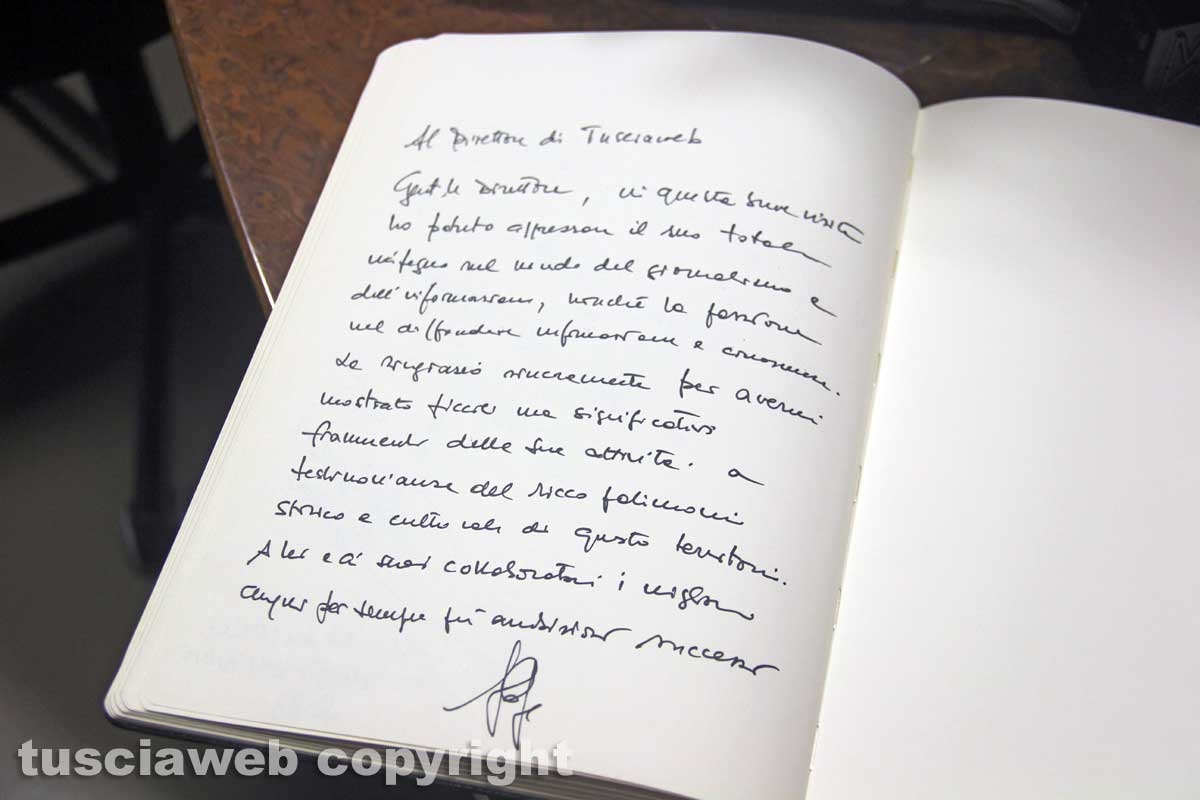 Al Direttore di Tusciaweb
Gentile Direttore, in questa sua visita
ho potuto apprezzare il suo totale
impegno nel mondo del giornalismo e
dell'informazione, nonché la passione
nel diffondere informazione e conoscenza.
La ringrazio sinceramente per avermi
mostrato piccoli ma significativi
frammenti delle sue attività a
testimonianza del ricco patrimonio
storico e culturale di questo territorio.
A lei e ai suoi collaboratori i migliori
auguri per sempre più ambiziosi successi
tusciaweb copyright